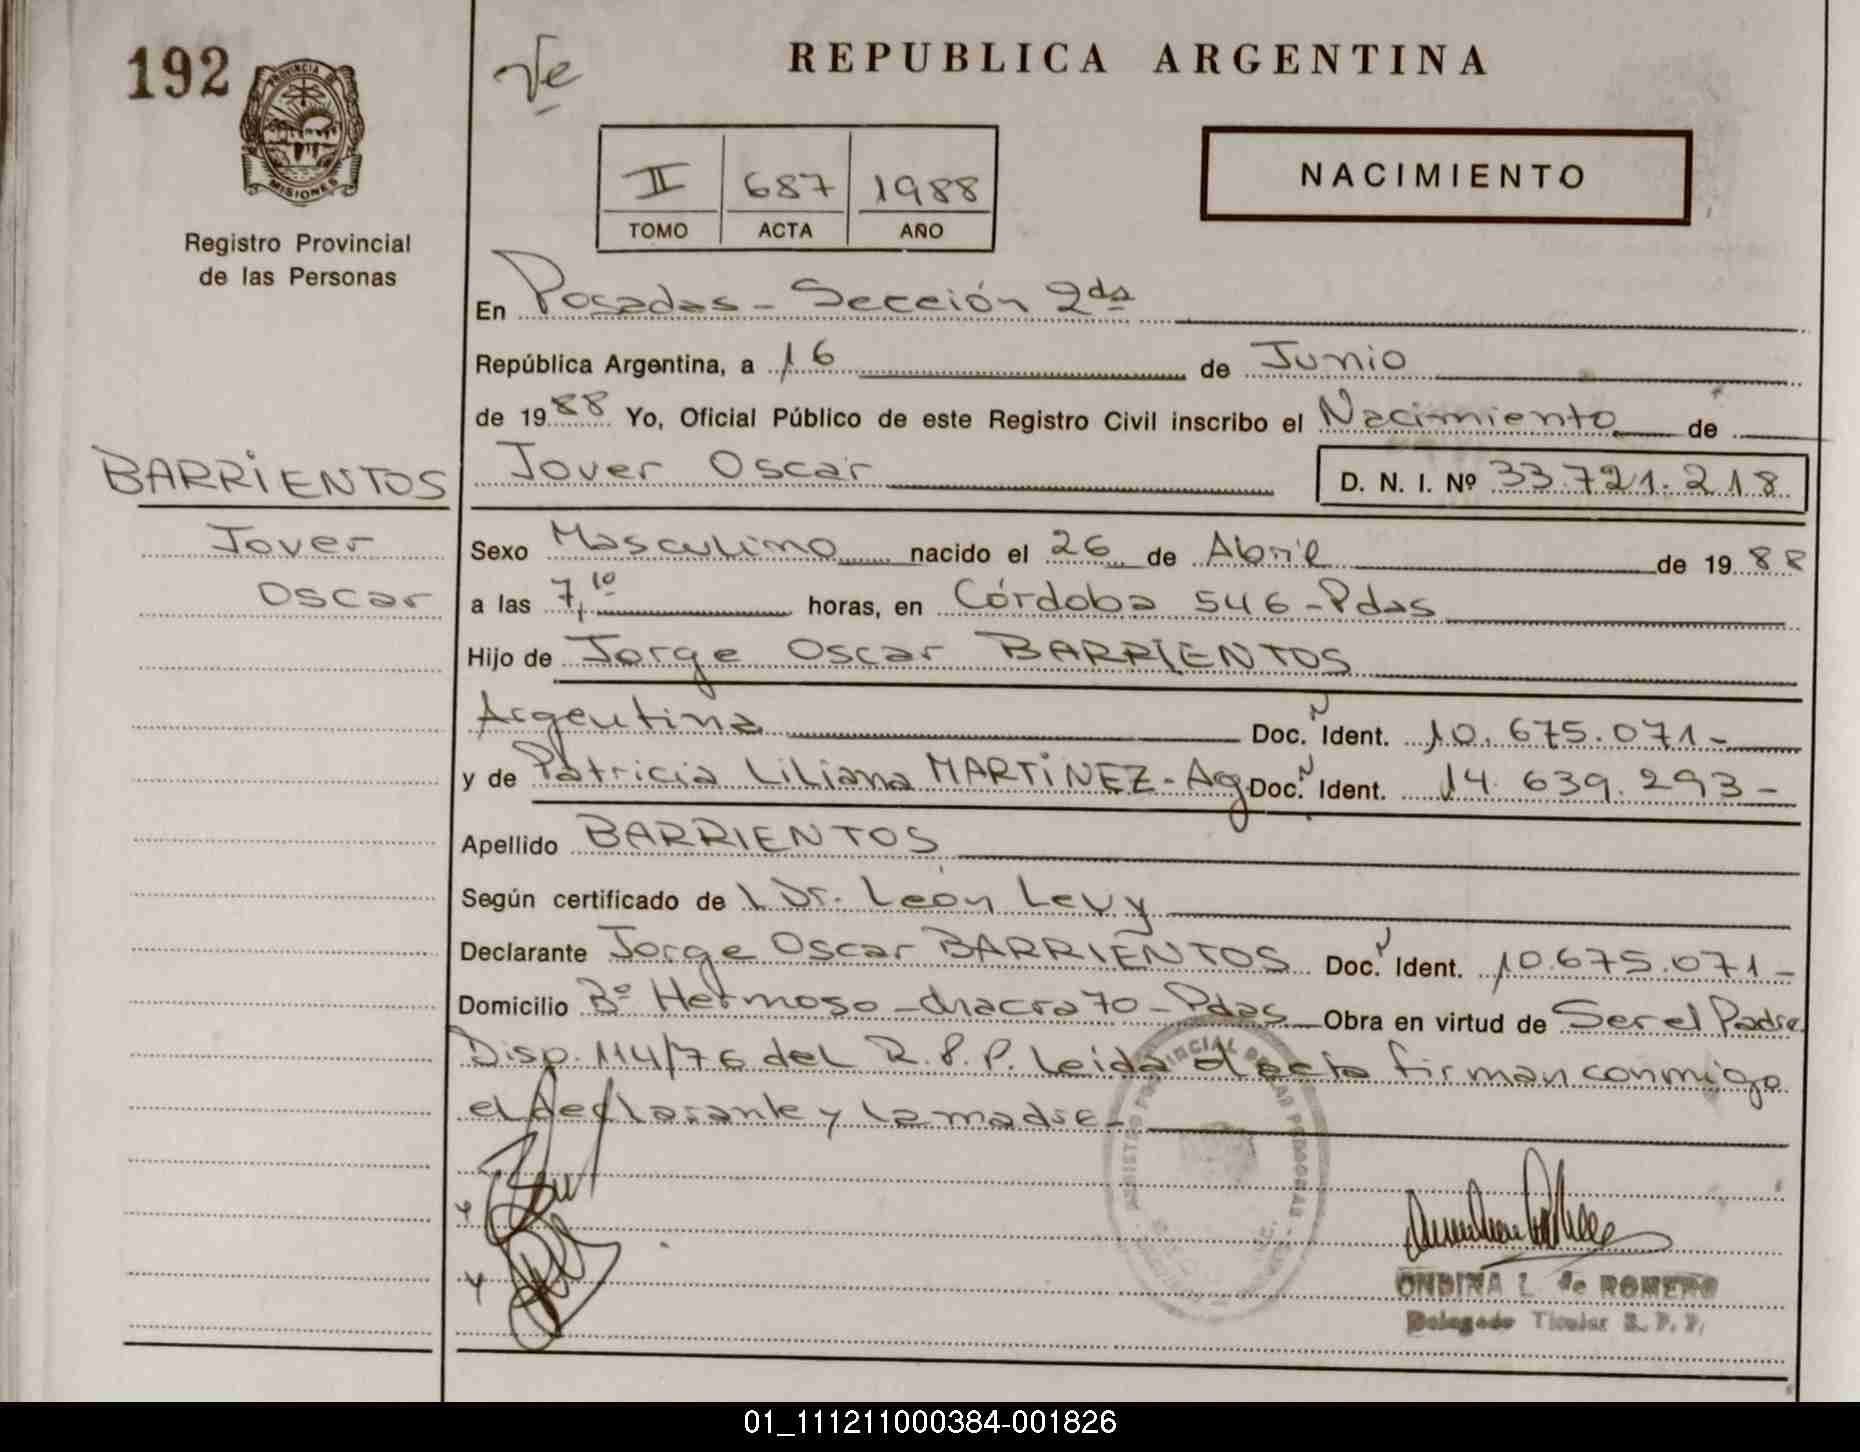 192
PROVINCIA DE
MISIONES
Registro Provincial
de las Personas
REPUBLICA ARGENTINA
II 687 1988
TOMO ACTA AÑO
NACIMIENTO
En Posadas - Sección 2da
República Argentina, a 16 de Junio
de 1988 Yo, Oficial Público de este Registro Civil inscribo el Nacimiento de
BARRIENTOS Jover Oscar D. N. I. Nº 33.721.218
Jover Sexo Masculino nacido el 26 de Abril de 1988
Oscar a las 7,10 horas, en Córdoba 546-Pdas
Hijo de Jorge Oscar BARRIENTOS
Argentina Doc. Ident. 10.675.071-
y de Patricia Liliana MARTINEZ - Ag Doc. Ident. 14.639.293-
Apellido BARRIENTOS
Según certificado de l Dr. León Levy
Declarante Jorge Oscar BARRIENTOS Doc. Ident. 10.675.071-
Domicilio Bº Hermoso - chacra 70 - Pdas Obra en virtud de Ser el Padre
Disp. 114/76 del R.P.P. Leida el acta firman conmigo
el declarante y la madre-
ONDINA L. de ROMERO
Delegado Titular R. P. P.
01_111211000384-001826